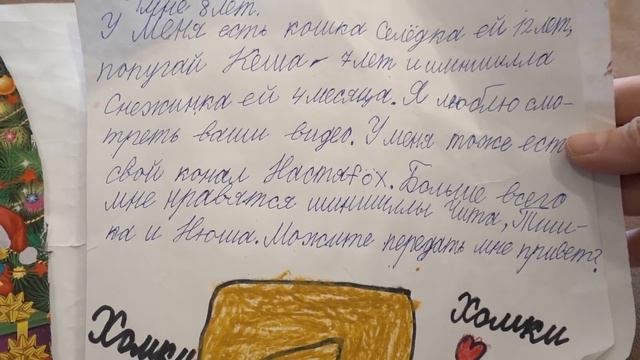 мне 8 лет.
У меня есть кошка Селёдка ей 12 лет,
попугай Кеша - 7 лет и шиншилла
Снежинка ей 4 месяца. Я люблю смо-
треть ваши видео. У меня тоже есть
свой канал Настяföx. Больше всего
мне нравятся шиншиллы Чита, Тиш-
ка и Нюша. Можите передать мне привет?
Хомки
Хомки